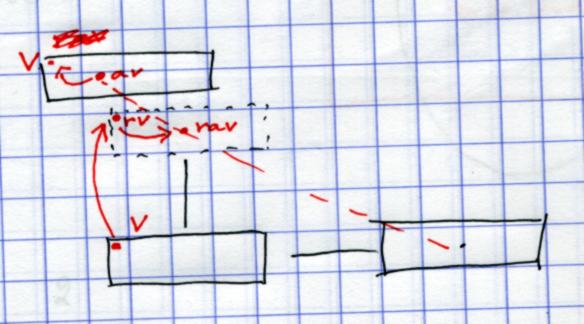 V
av
rv
rav
V